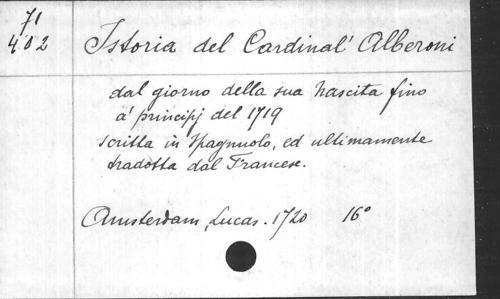 71
402
Istoria del Cardinal' Alberoni
dal giorno della sua Nascita fino
a' principj del 1719
scritta in Spagnuolo, ed ultimamente
tradotta dal Francese.
Amsterdam, Lucas. 1720 16°